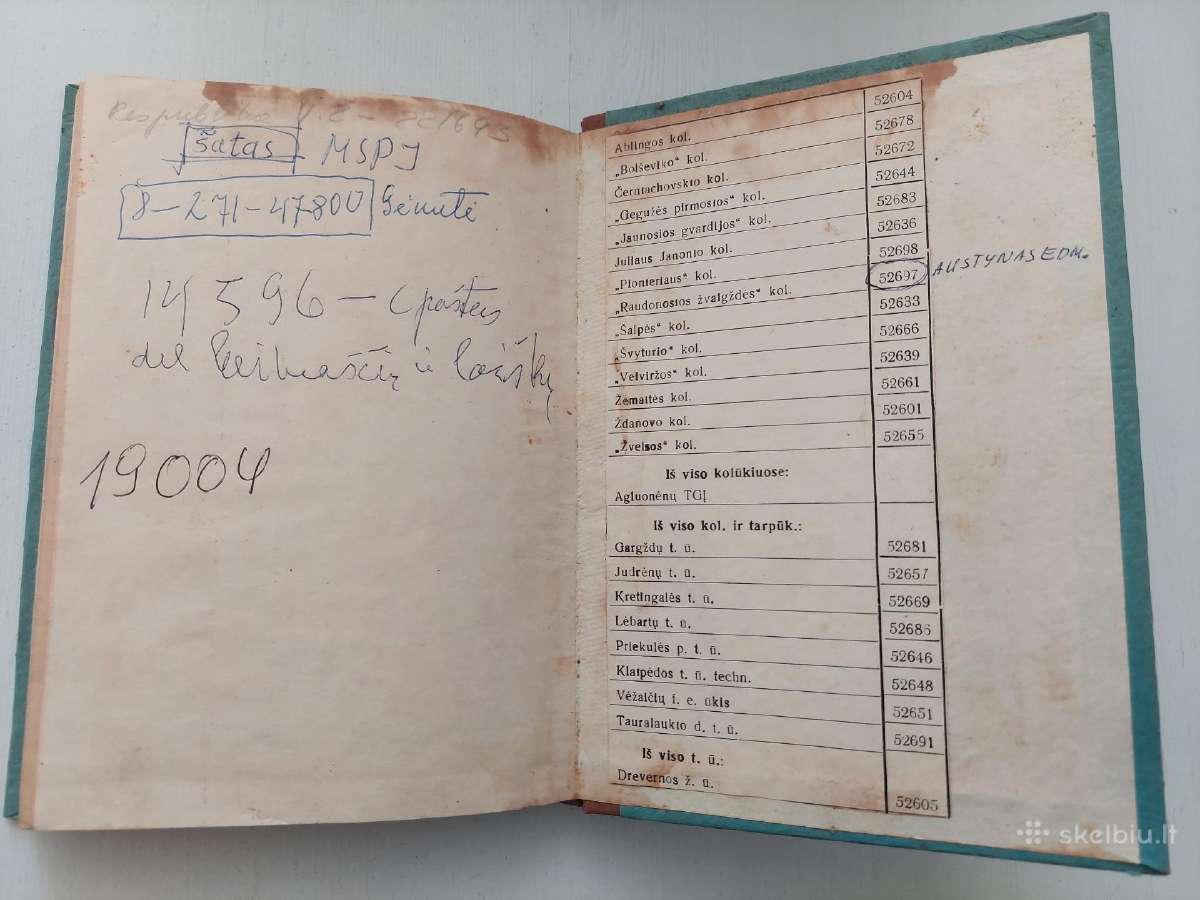 Respublika V.E - 221693
Šatas MSPJ
8-271-47800 Genutė
14 596 – c paštas
del
19004
Ablingos kol. 52604
„Bolševiko“ kol. 52678
Černiachovskio kol. 52672
„Gegužės pirmosios“ kol. 52644
„Jaunosios gvardijos“ kol. 52683
Juliaus Janonio kol. 52636
„Pionieriaus“ kol. 52698
„Raudonosios žvaigždės“ kol. 52697 AUSTYNAS EDM.
„Šalpės“ kol. 52633
„Švyturio“ kol. 52666
„Veiviržos“ kol. 52639
Žemaitės kol. 52661
Ždanovo kol. 52601
„Žvelsos“ kol. 52655
Iš viso kolūkiuose:
Agluonėnų TGĮ
Iš viso kol. ir tarpūk.:
Gargždų t. ū. 52681
Judrėnų t. ū. 52657
Kretingalės t. ū. 52669
Lėbartų t. ū. 52686
Priekulės p. t. ū. 52646
Klaipėdos t. ū. techn. 52648
Vėžaičių f. e. ūkis 52651
Tauralaukio d. t. ū. 52691
Iš viso t. ū.:
Drevernos ž. ū. 52605
skelbiu.lt